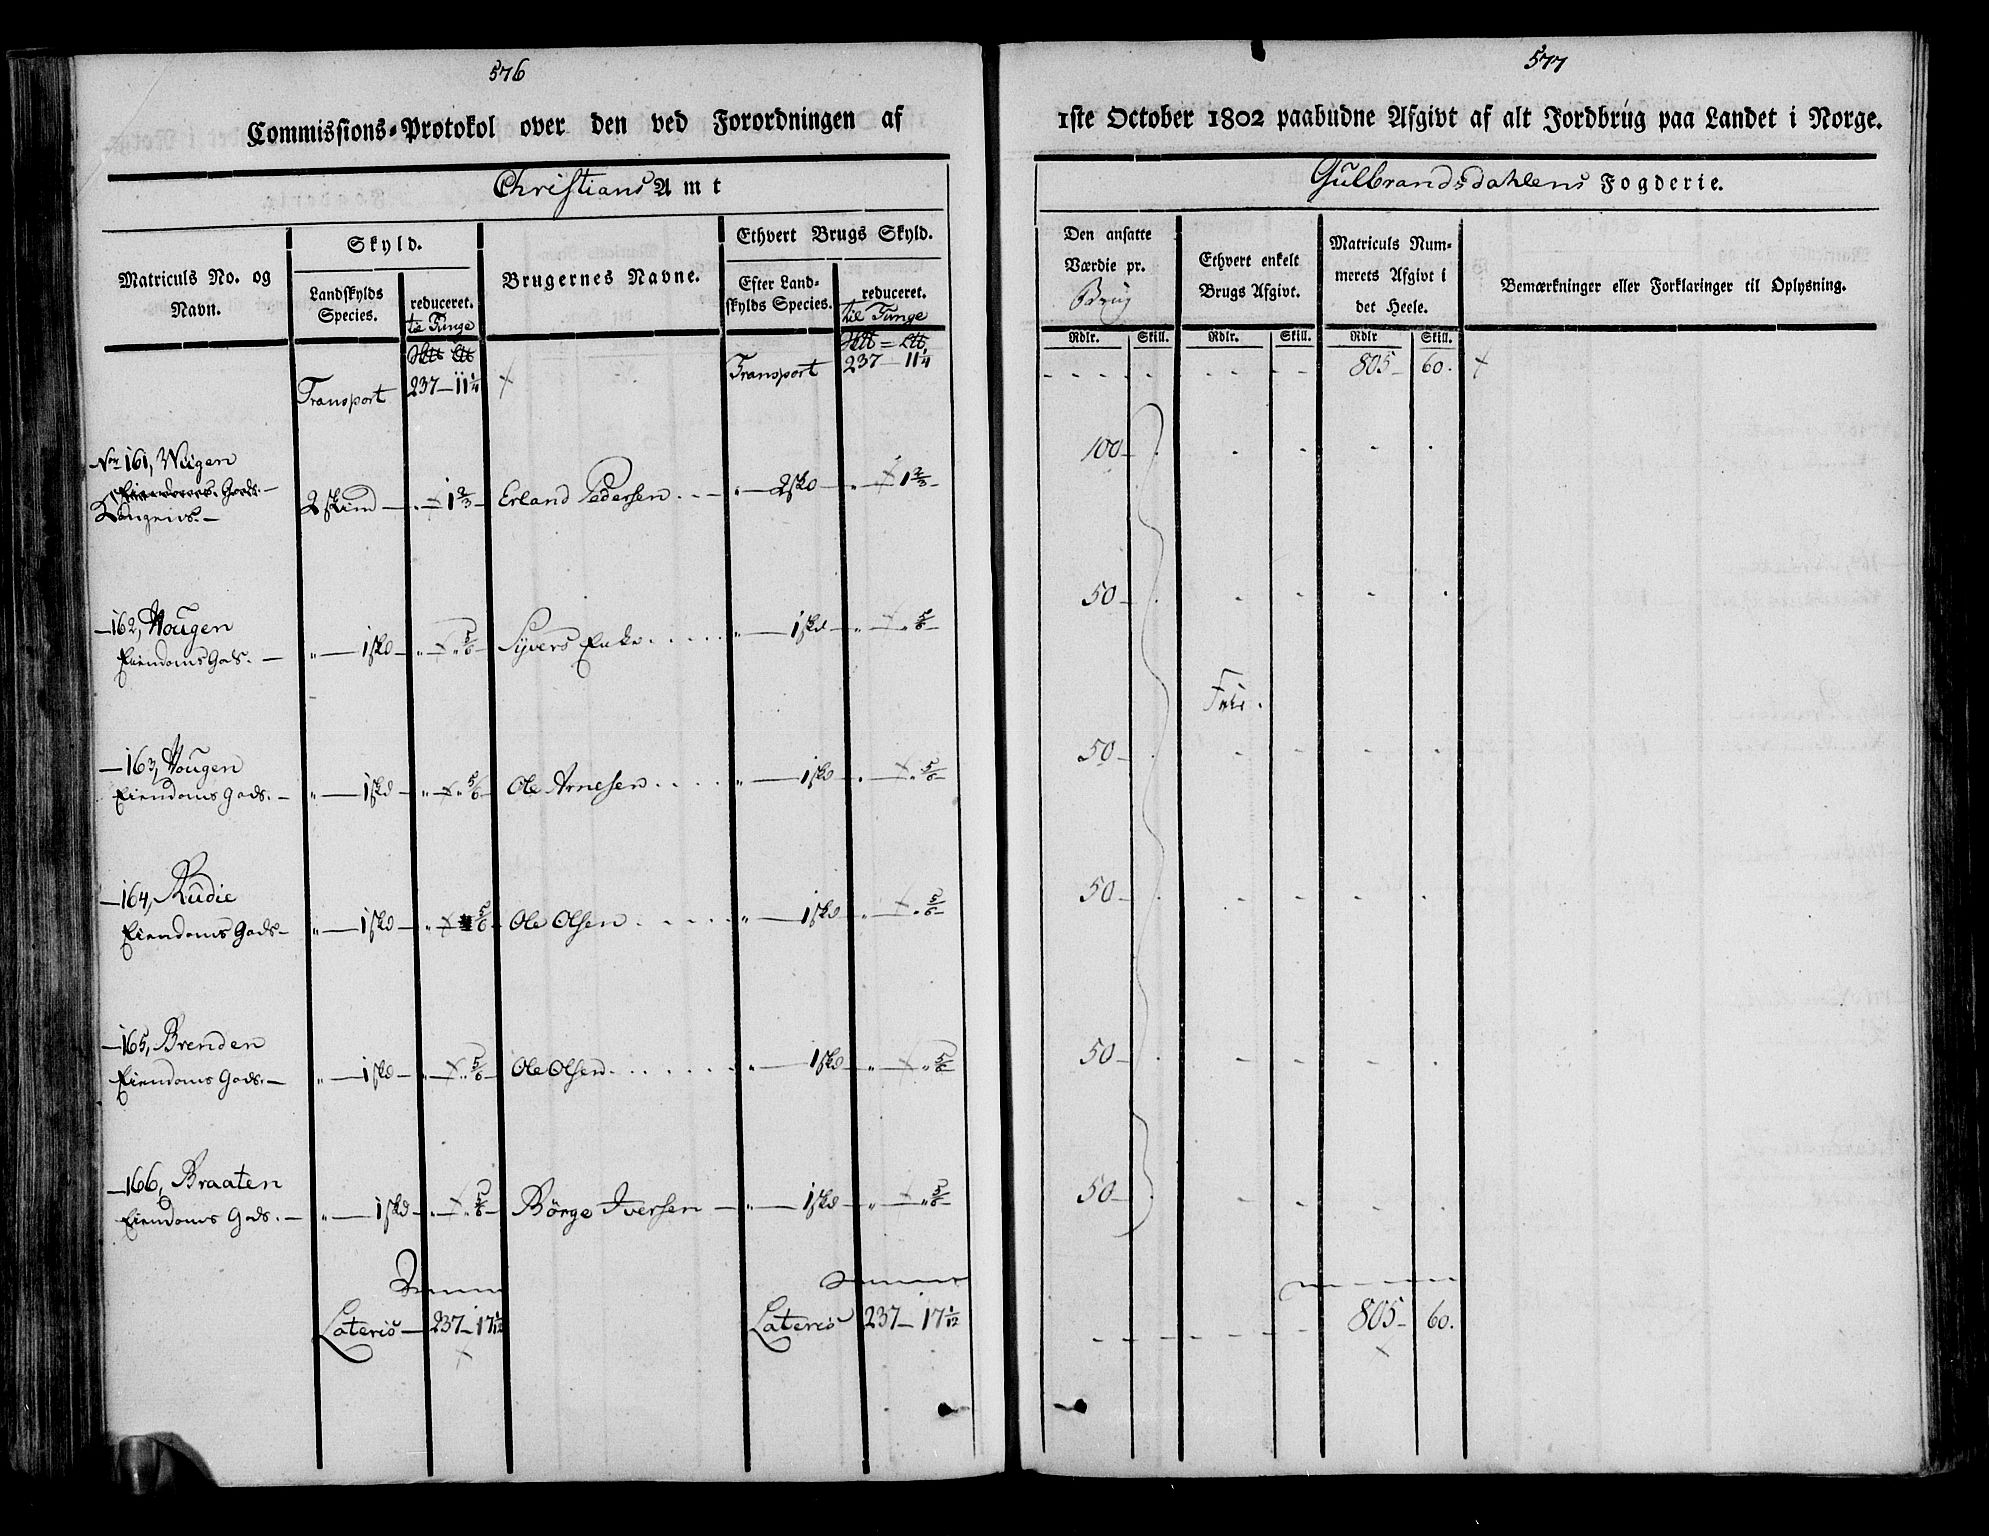 576
Commissions-Protokol over den ved Forordningen af
Christians Amt
Matriculs No. og Navn.
Skyld.
Landskylds Species.
reduceret. til Tunge
Brugernes Navne.
Ethvert Brugs Skyld.
Efter Landskylds Species.
reduceret. til Tunge
Transport 237 — 11 1/4 Transport 237 — 11 1/4
No 161, Wiigen
2 skind — „ — 1 2/3 — Erland Pedersen . . — „ — 2 skd — „ — 1 2/3 —
— 162, Hougen
Eiendoms Gods. — „ — 1 skd — „ — „ 5/6 Syvers Enke . . . . . „ — 1 skd — „ — „ 5/6
— 163, Hougen
Eiendoms Gods. — „ — 1 skd — „ — „ 5/6 Ole Arnesen . . . . „ — 1 skd — „ — „ 5/6
— 164, Rudie
Eiendoms Gods — „ — 1 skd — „ — 5/6 Ole Olsen . . . . . „ — 1 skd — „ — „ 5/6
— 165, Brenden
Eiendoms Gods. — „ — 1 skd — „ — „ 5/6 Ole Olsen . . . . . . „ — 1 skd — „ — „ 5/6
— 166, Braaten
Eiendoms Gods. — „ — 1 skd — „ — „ 5/6 Börge Iversen — „ — 1 skd — „ — „ 5/6
Lateris — 237 — 17 1/12 Lateris 237 — 17 1/12
577
1ste October 1802 paabudne Afgivt af alt Jordbrug paa Landet i Norge.
Gulbrandsdahlens Fogderie.
Den ansatte Værdie pr. Brug
Ethvert enkelt Brugs Afgivt.
Matriculs Nummerets Afgivt i det Heele.
Bemærkninger eller Forklaringer til Oplysning.
Rdlr. Skill. Rdlr. Skill. Rdlr Skill.
805 — 60.
100 —
50 —
Frie.
50 —
50 —
50 —
50 —
805 — 60.